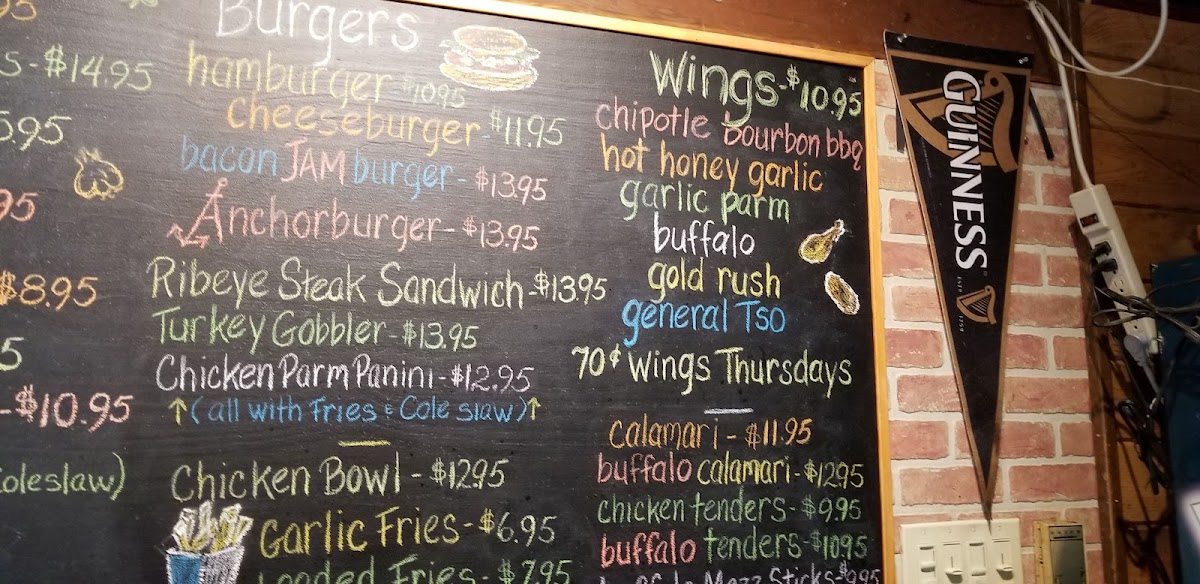 s-$14.95
5.95
95
$8.95
5
-$10.95
Coleslaw)
Burgers
hamburger $10.95
Cheeseburger-$11.95
bacon JAM burger-$13.95
Anchorburger-$13.95
Ribeye Steak Sandwich-$13.95
Turkey Gobbler-$13.95
Chicken Parm Panini-$12.95
↑(all with Fries & Cole slaw)↑
Chicken Bowl-$12.95
Garlic Fries-$6.95
Loaded Fries-$7.95
Wings-$10.95
chipotle bourbon bbq
hot honey garlic
garlic parm
buffalo
gold rush
general Tso
70¢ wings Thursdays
calamari-$11.95
buffalo calamari-$12.95
chicken tenders-$9.95
buffalo tenders-$10.95
buffalo Mozz Sticks-$9.95
GUINNESS